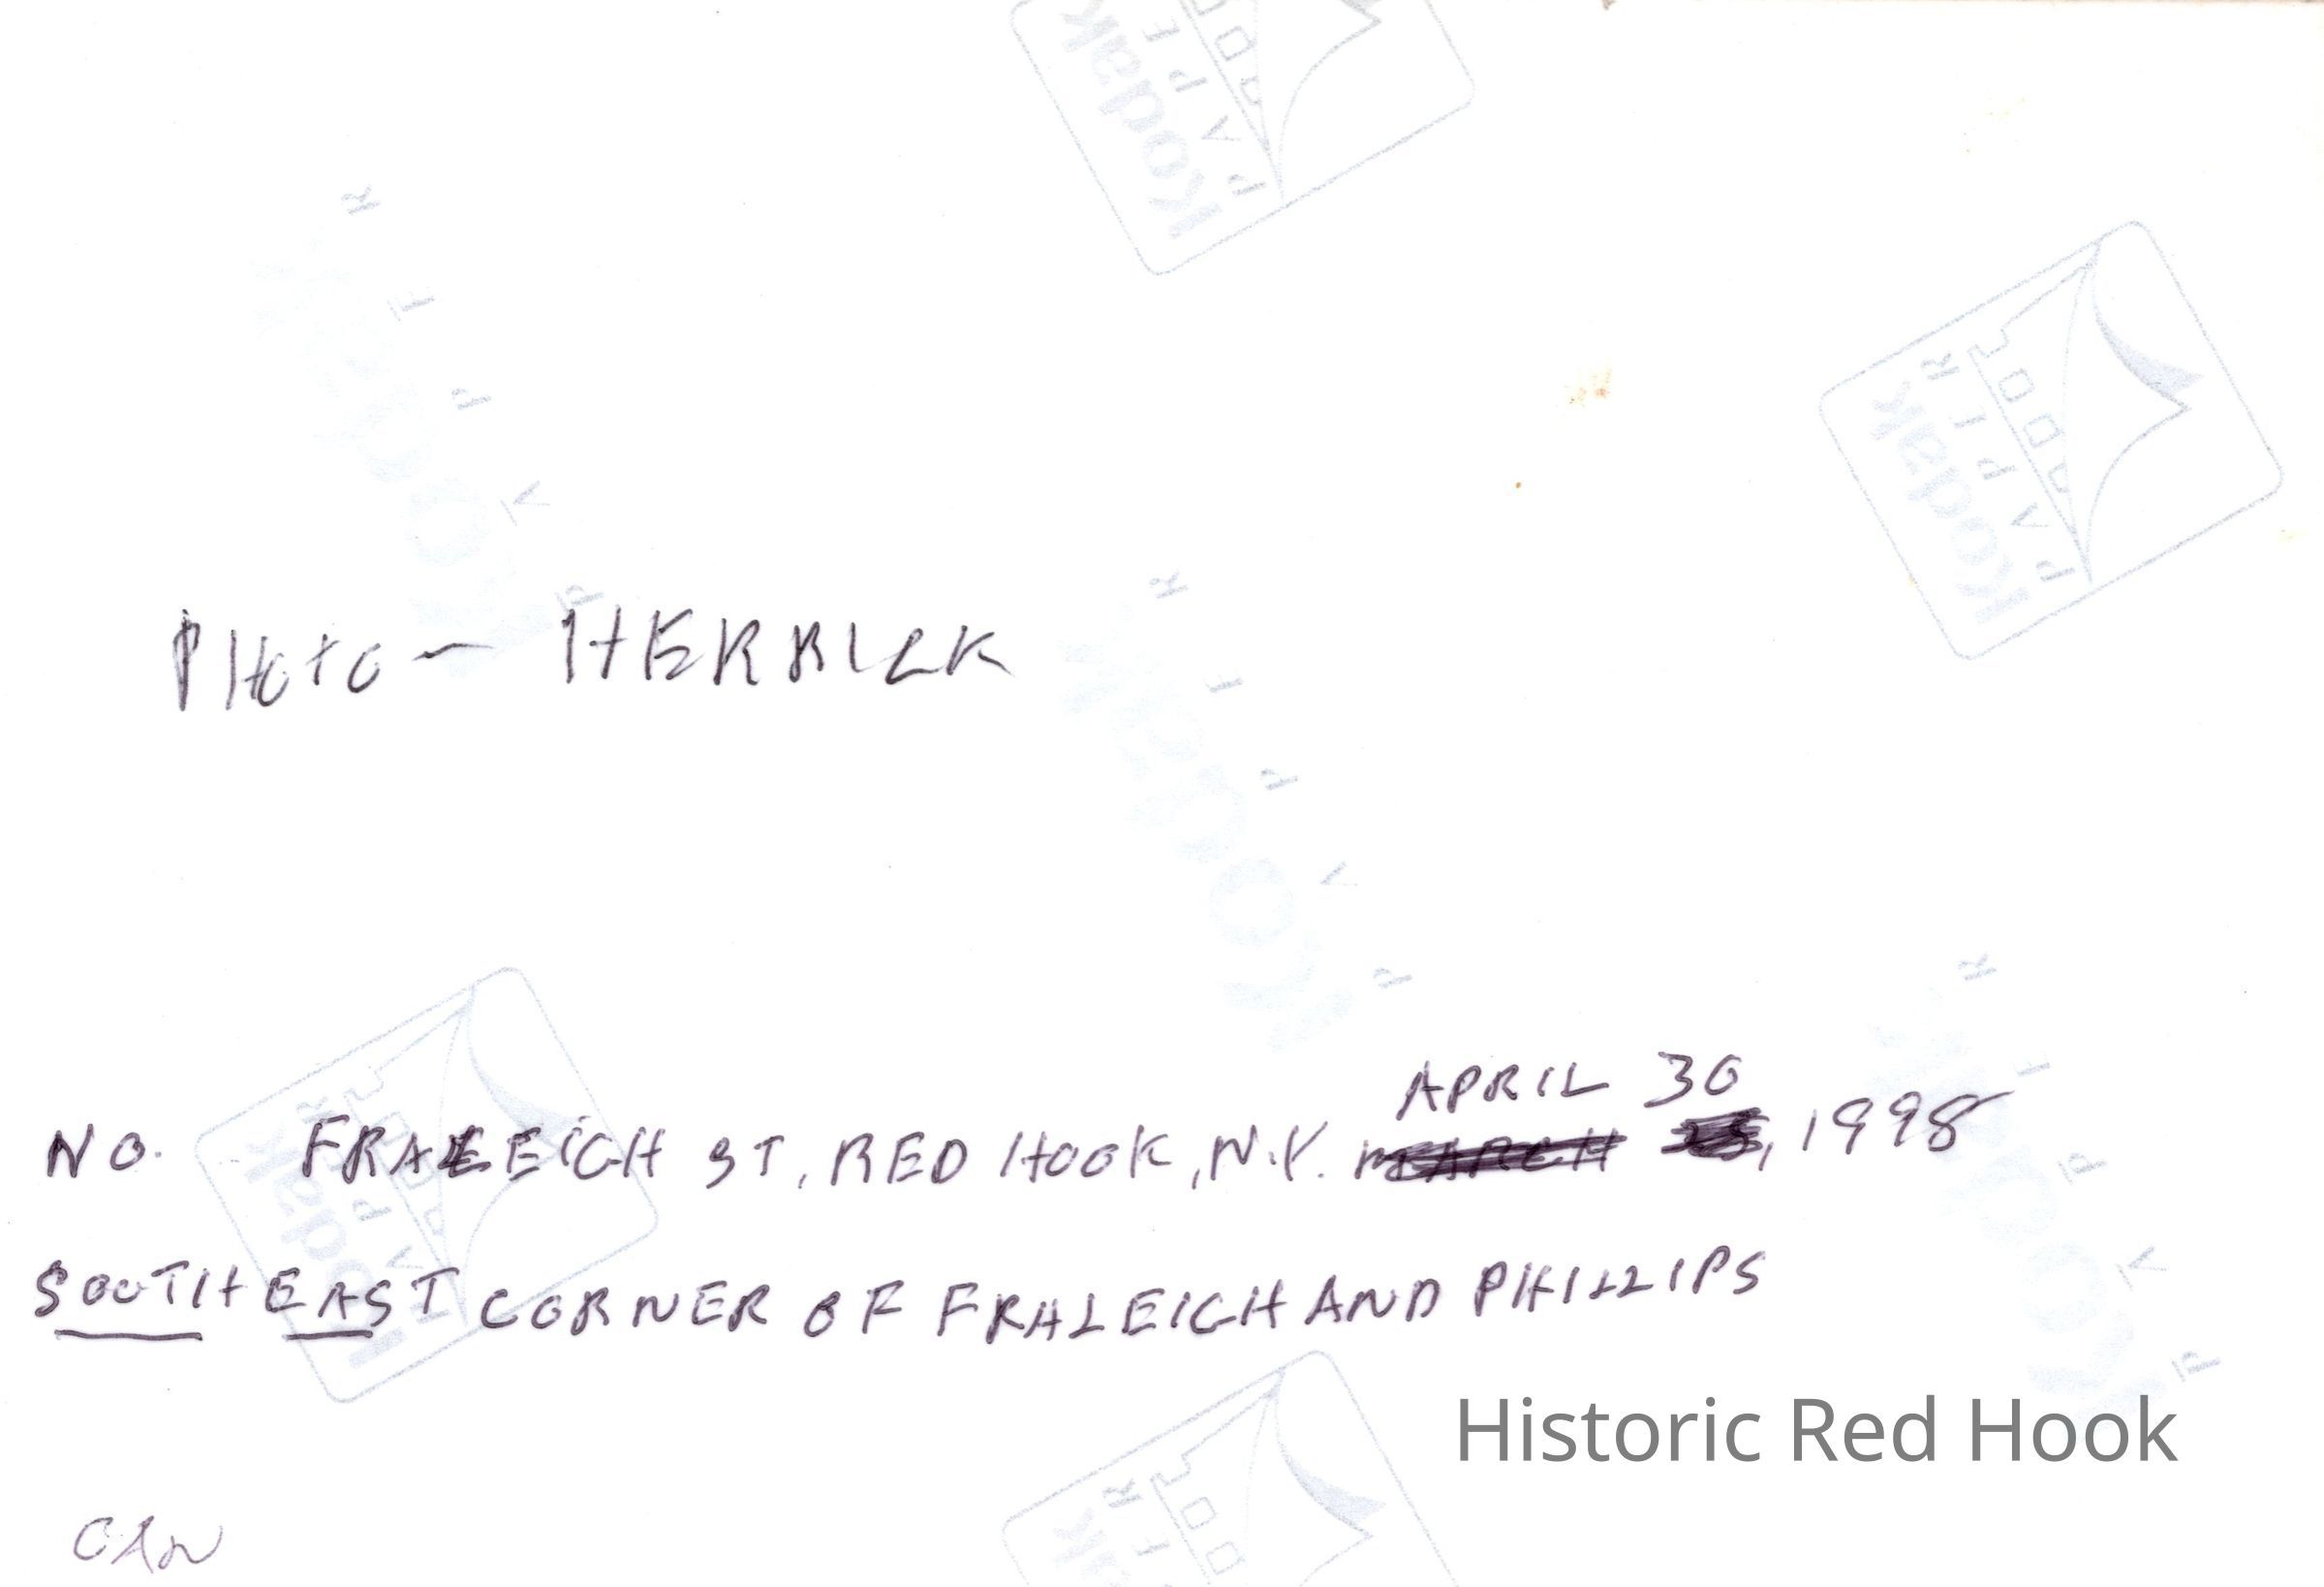 Kodak
PAPER
Kodak
PAPER
PHOTO - HERRICK
APRIL 30
NO. FRALEIGH ST, RED HOOK, N.Y. MARCH , 1998
SOUTHEAST CORNER OF FRALEIGH AND PHILLIPS
Historic Red Hook